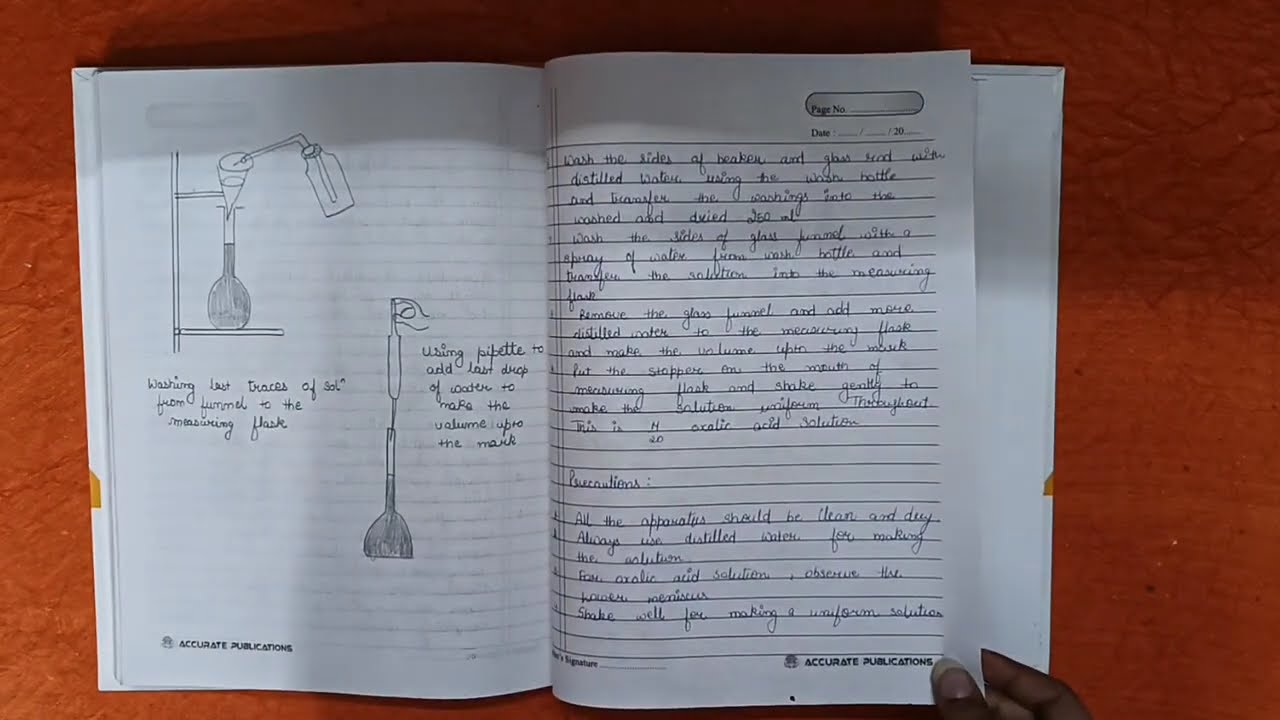 Washing last traces of solⁿ
from funnel to the
measuring flask
Using pipette to
add last drop
of water to
make the
volume upto
the mark
ACCURATE PUBLICATIONS
Page No. ....................
Date : ...... / ...... / 20......
Wash the sides of beaker and glass rod with
distilled water using the wash bottle
and transfer the washings into the
washed and dried 250 ml
Wash the sides of glass funnel with a
spray of water from wash bottle and
transfer the solution into the measuring
flask
Remove the glass funnel and add more
distilled water to the measuring flask
and make the volume upto the mark
Put the stopper on the mouth of
measuring flask and shake gently to
make the solution uniform Throughout
This is M/20 oxalic acid solution
Precautions :
All the apparatus should be clean and dry
Always use distilled water for making
the solution
For oxalic acid solution , observe the
lower meniscus
Shake well for making a uniform solution
Signature ....................
ACCURATE PUBLICATIONS